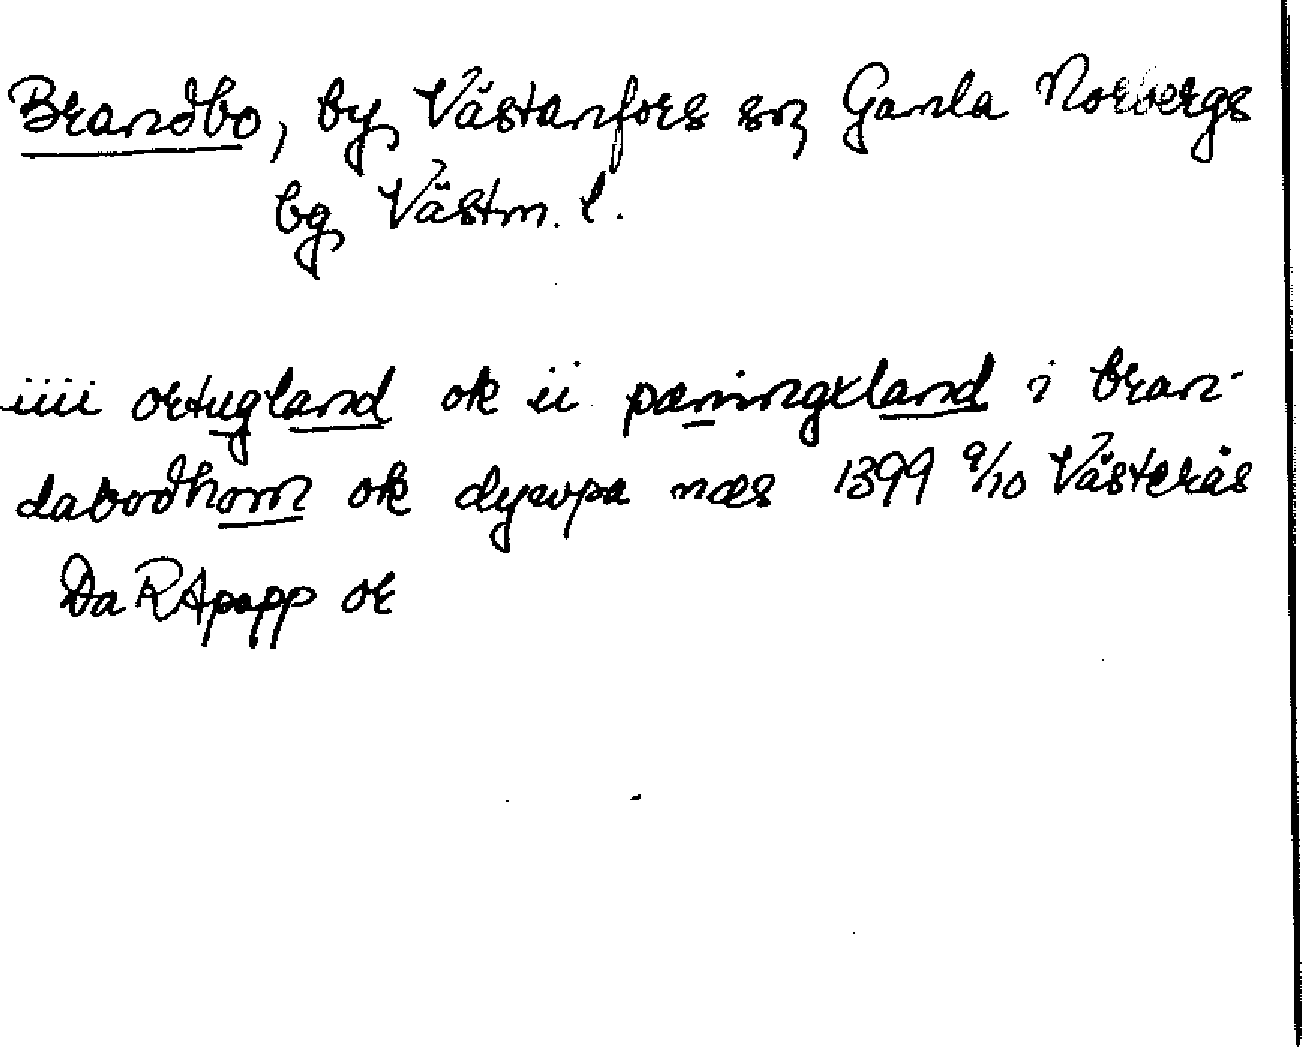 Brandbo, by, Västanfors sn, Gamla Norbergs
bg Västm. l.
iiii ortugland ok ii pæningxland i bran-
dabodhom ok dyæupa næs 1399 9/10 Västerås
Da RApapp or